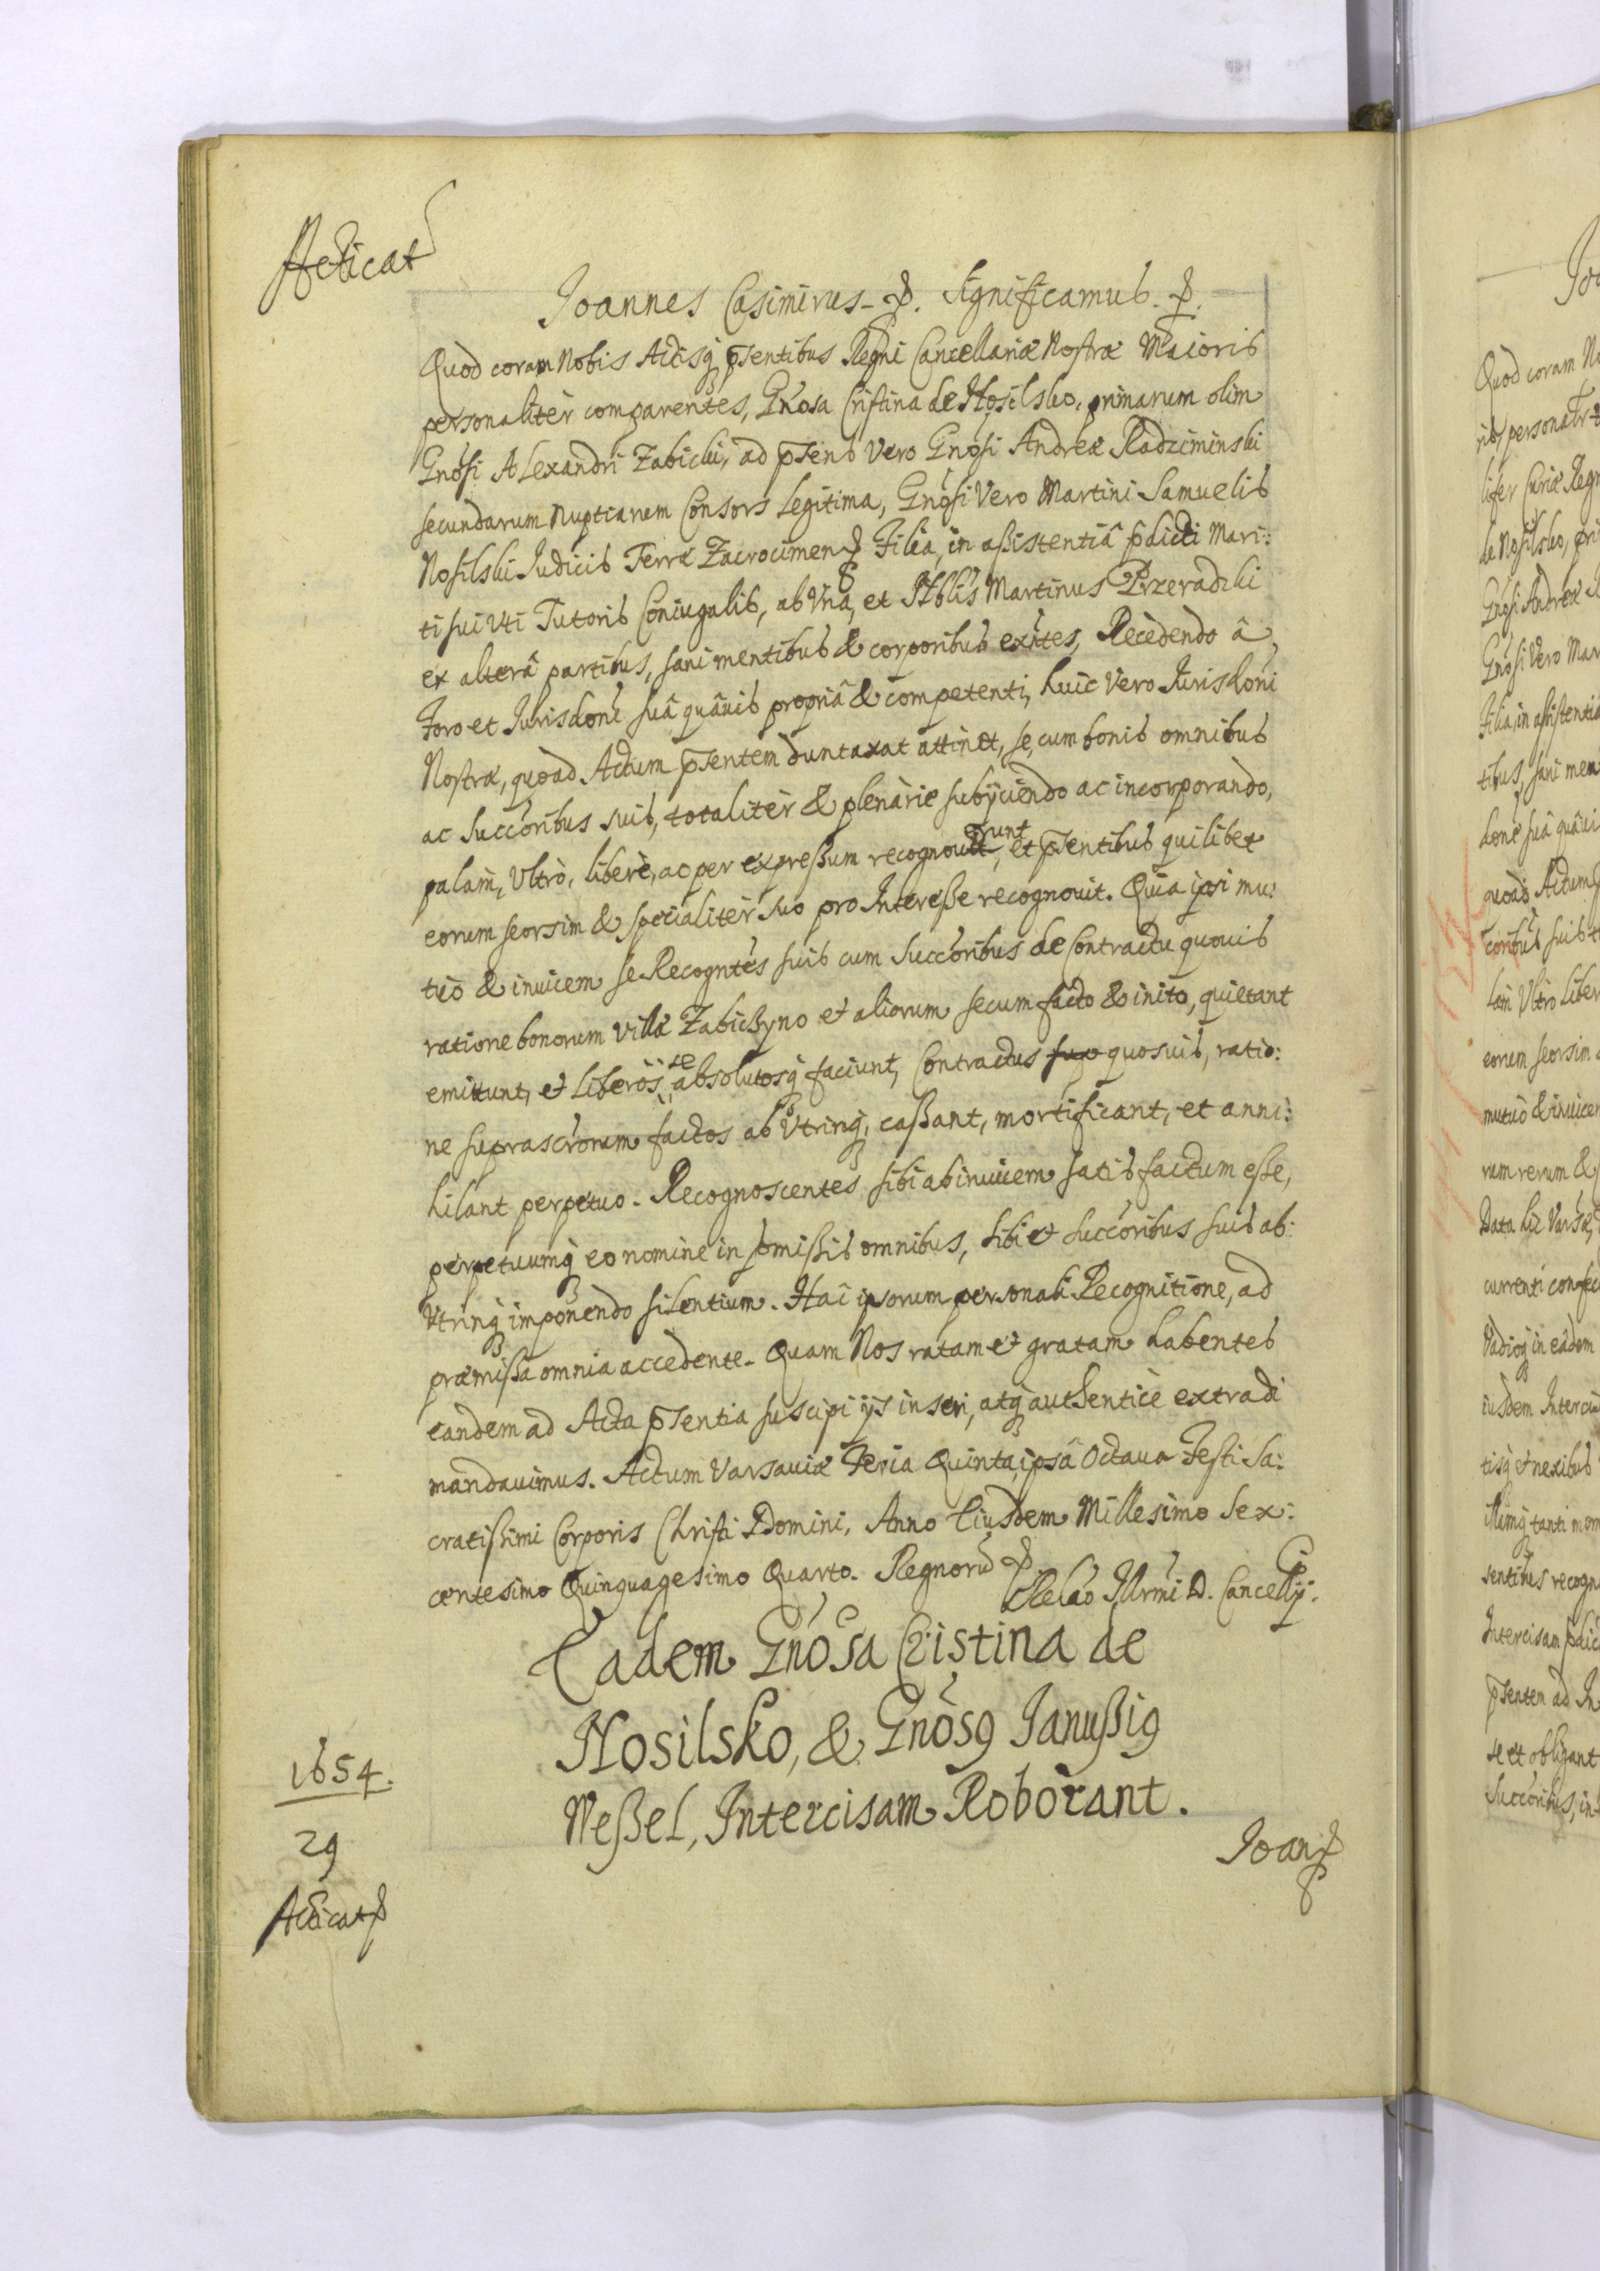 Acticat
Joannes Casimirus. Significamus.
Quòd coram Nobis Actisq pñtibus Regni Cancellariæ Nostræ Maioris
personalitèr comparentes, Gñosa Cristina de Nosilsko, primarum olim
Gñosi Alexandri Zabicki, ad pñens Vero Gñosi Andreæ Radziminski
secundarum Nuptiarum Consors Legitima, Gñosi Vero Martini Samuelis
Nosilski Judicis Terræ Zacrocimen Filia, in aßistentiâ pdicti Mari:
ti sui vti Tutoris Coniugalis, ab Vna, et Nblis Martinus Przeradzki
ex alterâ partibus, sani mentibus & corporibus exñtes, Recèdendo â
Foro et Jurisdone suâ quâuis propriâ & competenti, huic Vero Jurisdoni
Nostræ, quoàd Actum pñtem duntaxat attinet, se, cum bonis omnibus
ac Succoribus suis, totalitèr & plenàrie subijciendo ac incorporando,
palàm, Vltrò, liberè, ac per expreßum recognouerunt, et pñtibus quilibet
eorum seorsim & specialitèr suo pro Intereße recognouit. Quia ipsi mu:
tuò & inuicem se Recogntes suis cum Succoribus de Contractu quouis
ratione bonorum Villæ Zabiczyno et aliorum secum facto & inito, quietant
emittunt, et liberos se absolutosq faciunt, Contractus suo quosuis, ratio:
ne suprascrorum factos ab Vtrinq, caßant, mortificant, et anni:
hilant perpetuo. Recognoscentes sibi ab inuicem satis factum eße,
perpetuumq eo nomine in pmißis omnibus, sibi et succoribus suis ab:
Vtrinq imponèndo silentium. Hac ipsorum personali Recognitione, ad
præmißa omnia accedente. Quam Nos ratam et gratam habentes
eandem ad Acta pñentia suscipi ijs inseri, atq authenticè extradi
mandauimus. Actum Varsauiæ Feria Quinta ipsâ Octaua Festi Sa:
cratißimi Corporis Christi Domini, Anno Eiusdem Millesimo Sex:
centesimo Quinquagesimo Quarto. Regnorũ
Relao Jllrmi D. Cancellrij.
Eadem Gñosa Cristina de
Nosilsko, & Gñosq Janußiq
Weßel, Intercisam Roborant.
1654.
29
Acticat
Joan